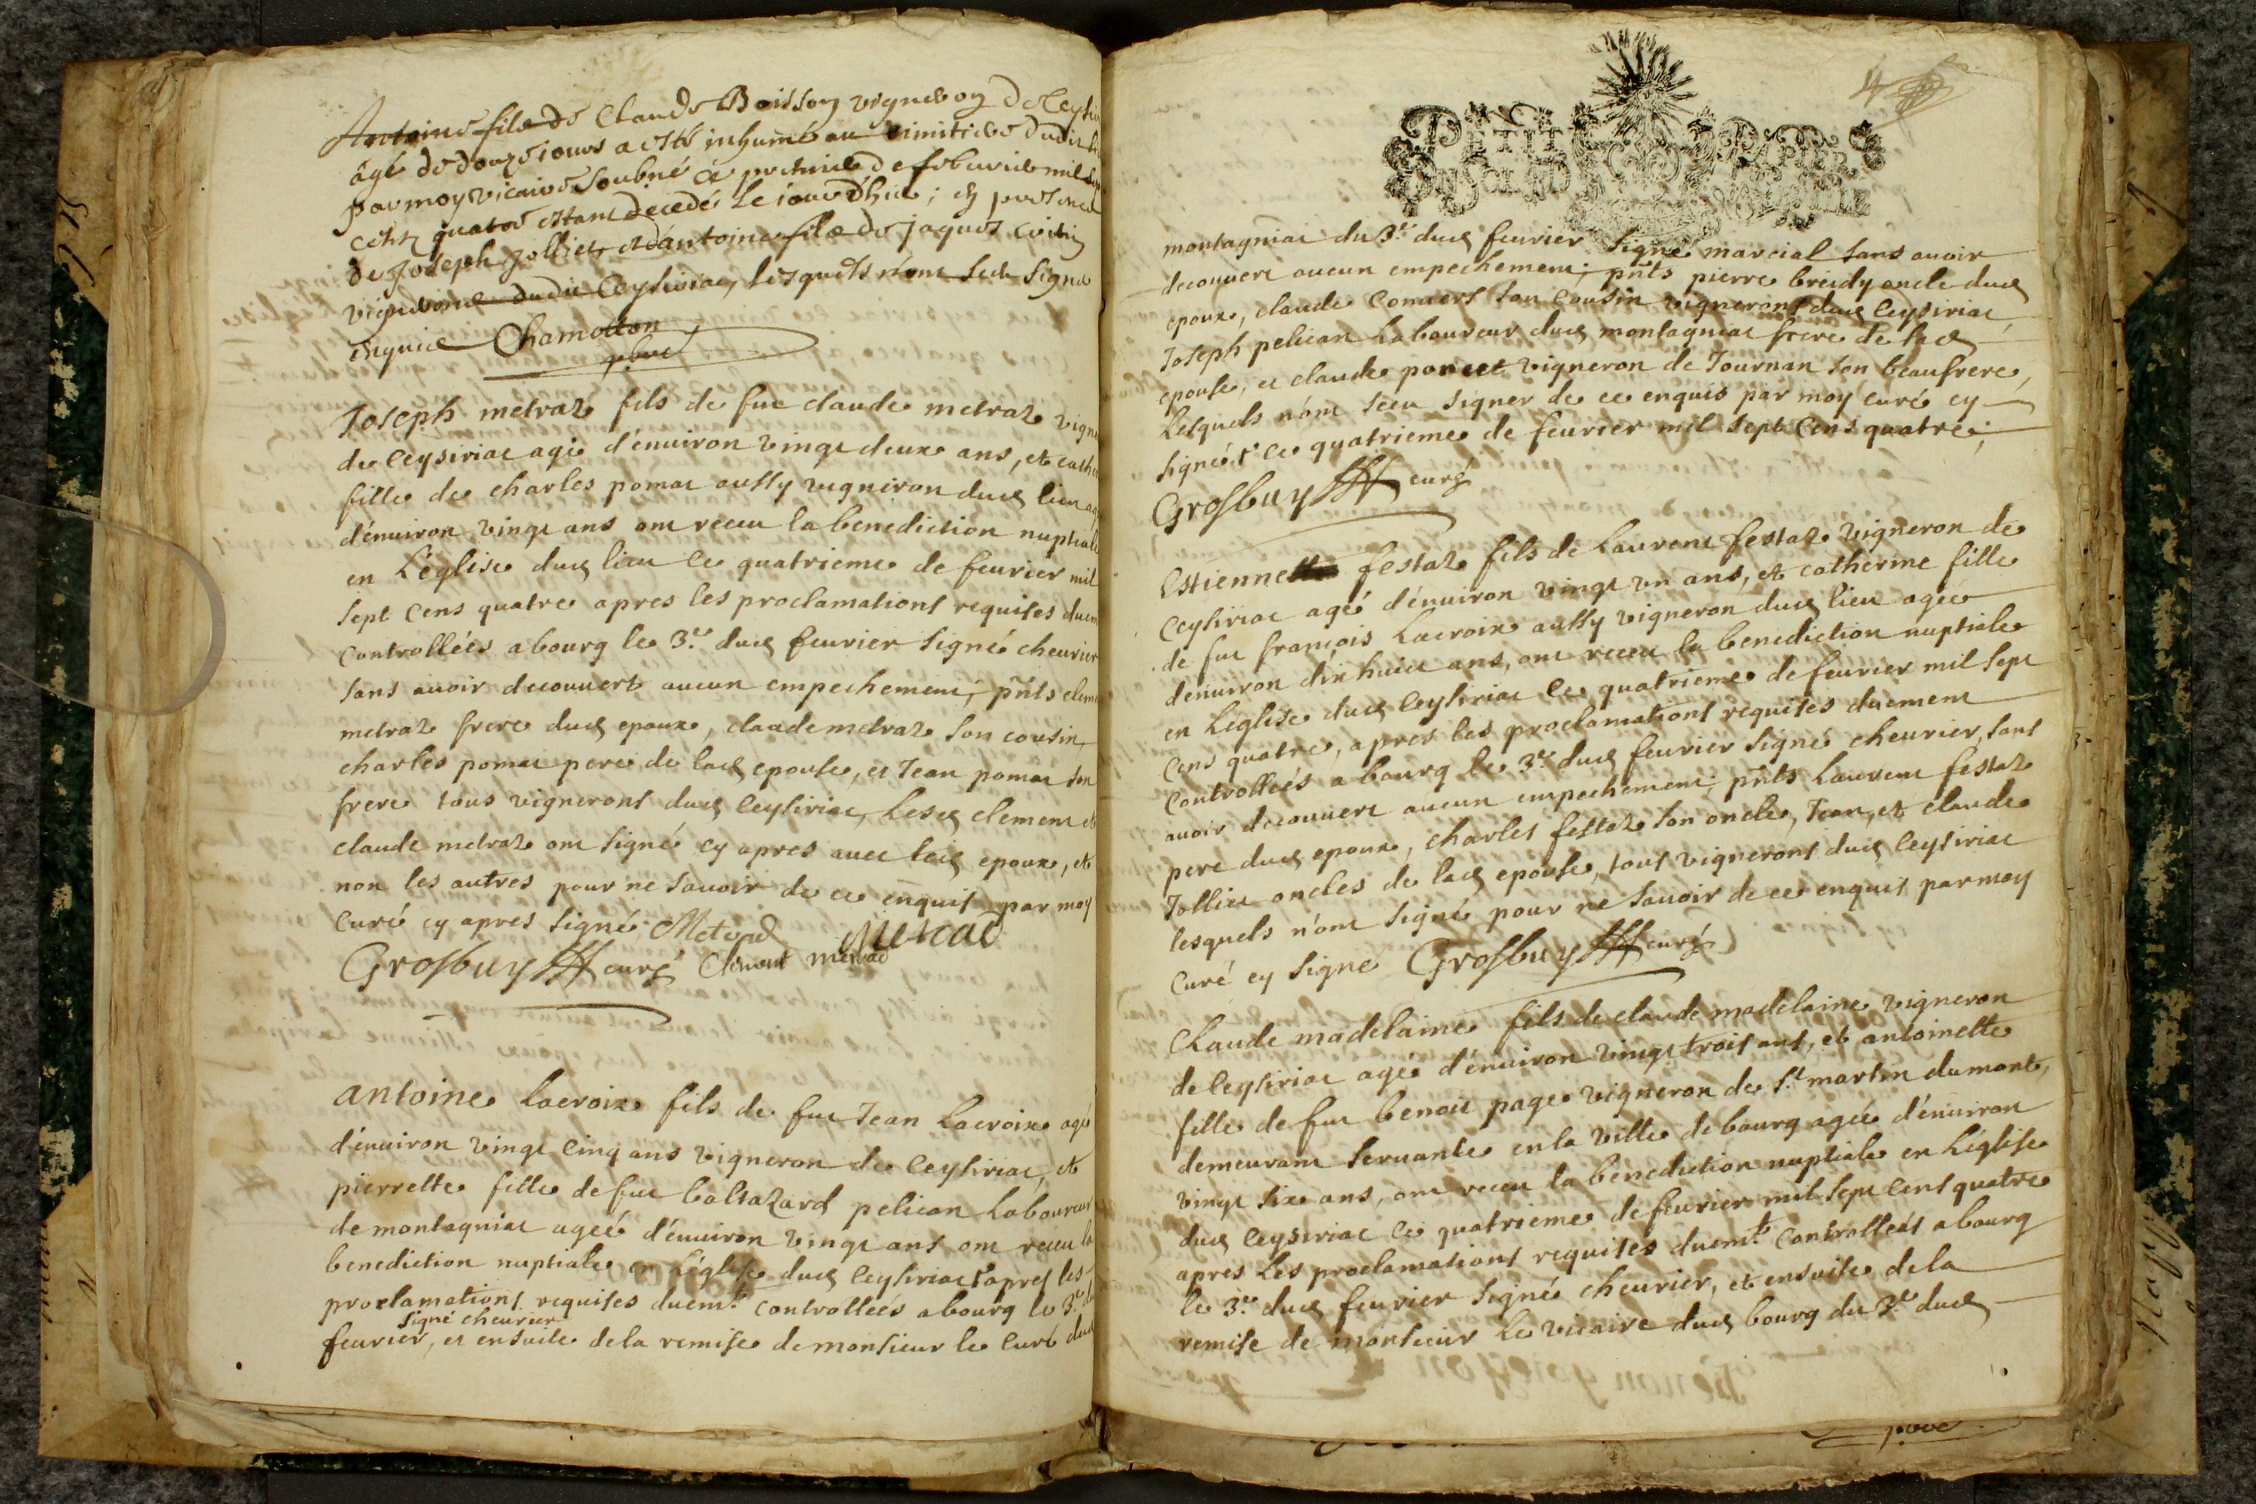 Antoine fils de Claude Boisson vigneron de Ceysiria
âgé de douze jours a esté inhumé au cimitiere dudit
par moy vicaire soubné ce premier de feburier mil sept
centz quatre estant decedé le iour d'hier ; en presence
de Joseph Jolliet et d'antoine fils de jaques
vignerons dudit Ceysiriac, lesquels n'ont sceu signer
enquis Chamolton
pbre
Joseph metraz fils de fue claude metraz vigne
de Ceysiriac agé d'enuiron vingt deux ans, et cathe
fille de charles pomat aussy vigneron dud lieu ag
d'enuiron vingt ans ont receu la benediction nuptiale
en L'eglise dud lieu ce quatrieme de feurier mil
sept Cens quatre apres les proclamations requises duem
Controllées a bourg le 3e dud feurier signé cheurier
sans auoir decouvert aucun empechement ; pnts cleme
metraz frere dud epoux, claude metraz son cousin,
charles pomat pere de lad epouse, et Jean pomat son
frere tous vignerons dud Ceysiriac, Lesd clement et
claude metraz ont signé cy apres auec led epoux, et
non les autres pour ne sauoir de ce enquis par moy
Curé cy apres signé Metrad Metrad
Grosbuy curé Clement metrad
antoine Lacroix fils de fue Jean Lacroix agé
d'enuiron vingt Cinq ans vigneron de Ceysiriac, et
pierrette fille de fue baltazard pelican Laboureur
de montagniat ageé d'enuiron vingt ans ont receu la
benediction nuptiale en L'eglise dud Ceysiriac apres les
proclamations requises duemt Controlleés abourg le 3e du
signé cheurier
feurier, et ensuite de la remise de monsieur le Curé dud
4
PETIT PAPIER
montagniat du 3e dud feurier signé marcial sans auoir
decouuert aucun empechement ; pnts pierre breidy oncle dud
epoux, claude Conuert son Cousin vignerons dud Ceysiriac,
Joseph pelican Laboureur dud montagniat frere de lad
epouse, et claude poncet vigneron de Journan son beaufrere,
Lesquels n'ont sceu signer de ce enquis par moy curé cy
signé ce quatrieme de feurier mil sept Cens quatre ;
Grosbuy curé
Estienne festaz fils de Laurent festaz vigneron de
Ceysiriac ageé d'enuiron vingt un ans, et catherine fille
de fue françois Lacroix aussy vigneron dud lieu ageé
denuiron dix huict ans, ont receu la benediction nuptiale
en L'eglise dud Ceysiriac le quatrieme de feurier mil sept
Cens quatre, apres les proclamations requises duement
Controlleés a bourg le 3e dud feurier signé cheurier, sans
auoir decouuert aucun empechement ; pnts Laurent festaz
pere dud epoux, charles festaz son oncle, Jean, et claude
Jolliet oncles de lad epouse, tous vignerons dud Ceysiriac
lesquels n'ont signé pour ne sauoir de ce enquis par moy
Curé cy signé Grosbuy curé
Claude madelaine fils de claude madelaine vigneron
de Ceysiriac agé d'enuiron vingt trois ans, et antoinette
fille de fue benoit page vigneron de St martin du mont,
demeurant seruante en la ville de bourg ageé d'enuiron
vingt six ans, ont receu la benediction nuptiale en L'eglise
dud Ceysiriac ce quatrieme de feurier mil sept Cens quatre
apres Les proclamations requises duemt Controlleés abourg
le 3e dud feurier signé cheurier, et ensuite de la
remise de monsieur Le vicaire dud bourg du 3e dud